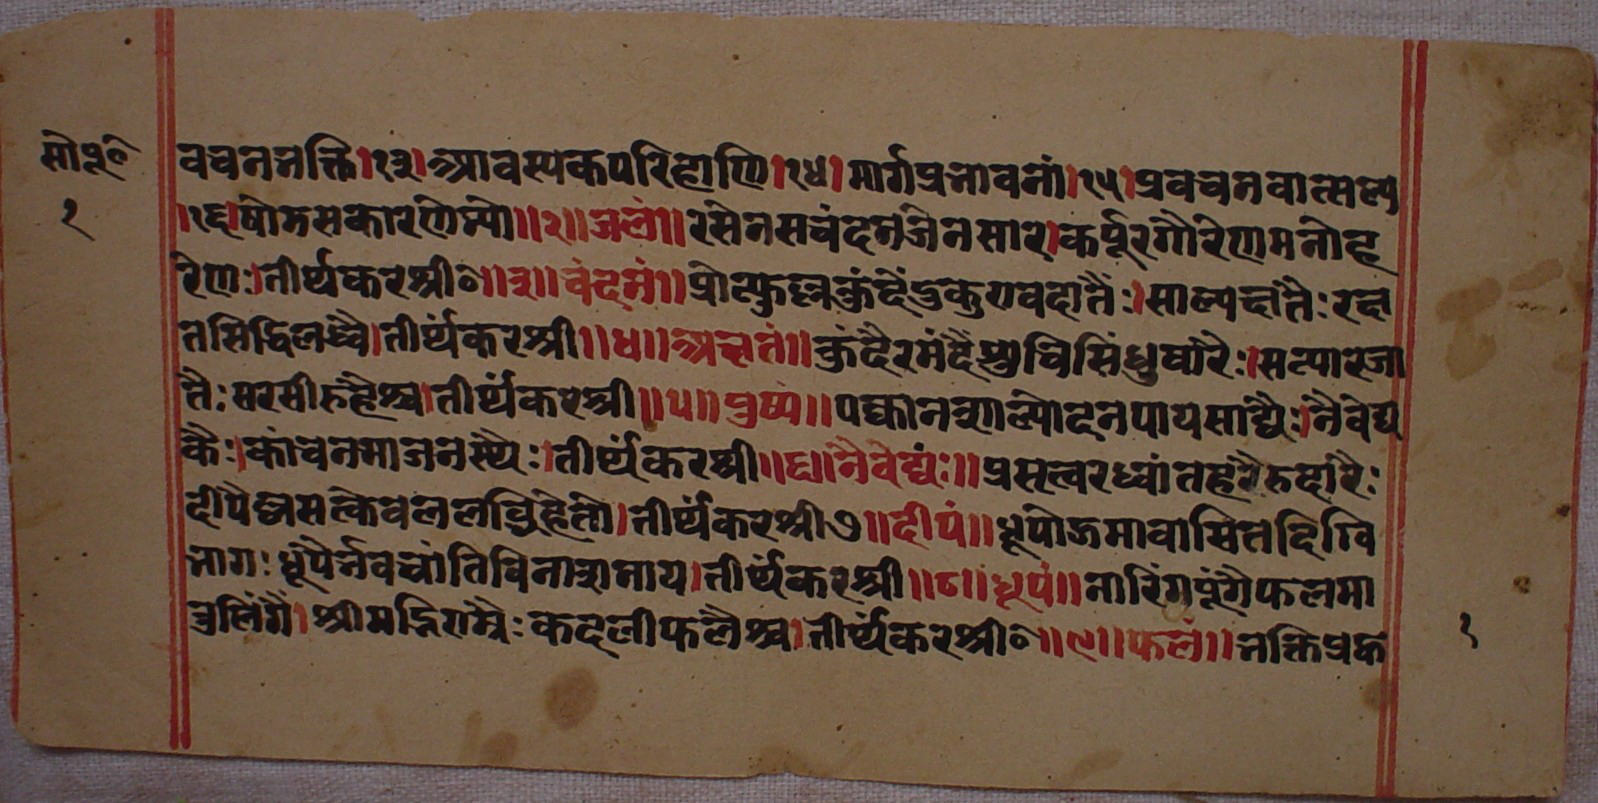 सो पू० वचनभक्ति।१३।आवस्यकपरिहाणि।१४।मार्गप्रभावनां।१५।प्रवचनवात्सल्य
१ ।१६।षोडसकारणेभ्यो॥२॥जलं॥रसेनसचंदनजेनसार।कर्पूरगौरेणमनोह
रेण:।तीर्थकरश्री०॥३॥चंदनं॥प्रोत्फुल्लकुंदेंदुकुणवदातै:।साल्यक्षतै:रक्ष
तसिद्धिलब्धै।तीर्थंकरश्री॥४॥अक्षतं॥कुंदैरमंदैशुचिसिंधुवारै:।सत्पारजा
तै:सरसीरुहैश्च।तीर्थंकरश्री॥५॥पुष्पं॥पक्वानशाल्योदनपायसाद्यै:।नैवेद्य
कै:।कांचनभाजनस्थै:।तीर्थंकरश्री॥६॥नैवेद्यं:॥प्रसत्वरध्वांतहरैरुदारै:
दीपैल्लसत्केवललब्धिहेतो।तीर्थंकरश्री७॥दीपं॥धूपोत्तमावासितदिग्वि
भाग:धूपैर्भवभ्रांतिविनाशनाय।तीर्थंकरश्री॥८॥धूपं॥नारिंगपूंगैफलमा
तुलिंगै।श्रीमद्भि:कदलीफलैश्च।तीर्थंकरश्री०॥९॥फलं॥भक्तिप्रक
१